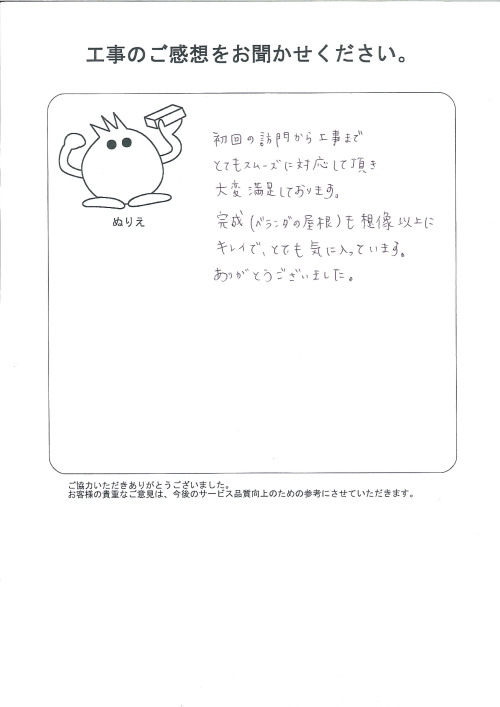 工事のご感想をお聞かせください。
初回の訪問から工事まで
とてもスムーズに対応して頂き
大変満足しております。
完成(ベランダの屋根)も想像以上に
キレイで、とても気に入っています。
ありがとうございました。
ぬりえ
ご協力いただきありがとうございました。
お客様の貴重なご意見は、今後のサービス品質向上のための参考にさせていただきます。